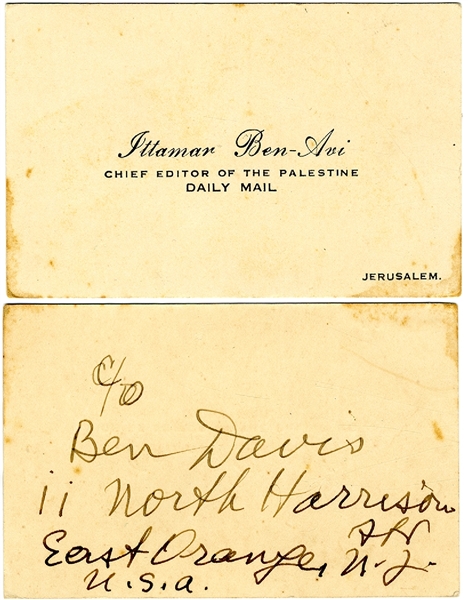 Ittamar Ben-Avi
CHIEF EDITOR OF THE PALESTINE
DAILY MAIL
JERUSALEM.
c/o
Ben Davis
11 North Harrison
East Orange, N.J.
U.S.A.